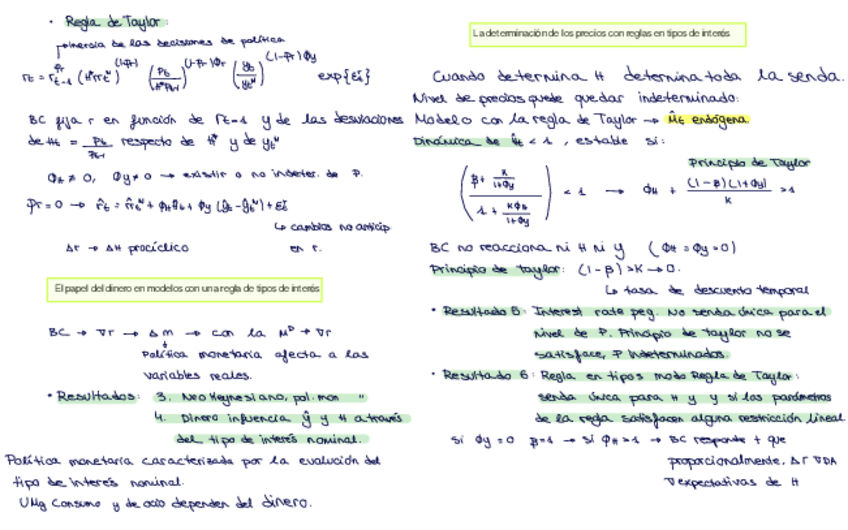 • Regla de Taylor:
inercia de las decisiones de política
r_t = r_{t-1}^{φr} (π* rr_t^n)^{(1-φr)} (P_t / π* P_{t-1})^{(1-φr)φπ} (y_t / y_t^n)^{(1-φr)φy} exp{ε_t^r}
BC fija r en función de r_{t-1} y de las desviaciones
de π_t = P_t / P_{t-1} respecto de π* y de y_t^n
φπ ≠ 0, φy ≠ 0 → existir o no indeter. de P.
φr = 0 → r̂_t = r̂r_t^n + φπ π̂_t + φy (ŷ_t - ŷ_t^n) + ε_t^r
↳ cambios no anticip
en r.
Δr → Δπ procíclico
El papel del dinero en modelos con una regla de tipos de interés
BC → ∇r → Δm → con la M^D → ∇r
Política monetaria afecta a las
variables reales.
• Resultados: 3. Neo Keynesiano, pol. mon "
4. Dinero influencia ŷ y π a través
del tipo de interés nominal.
Política monetaria caracterizada por la evolución del
tipo de interés nominal.
UMg Consumo y de ocio dependen del dinero.
La determinación de los precios con reglas en tipos de interés
Cuando determina π determina toda la senda.
Nivel de precios puede quedar indeterminado:
Modelo con la regla de Taylor → M̂_t endógena
Dinámica de π̂_t < 1, estable si:
Principio de Taylor
((β + κ/(1+φy)) / (1 + κφπ/(1+φy))) < 1 → φπ + (1-β)(1+φy)/κ > 1
BC no reacciona ni π ni y (φπ = φy = 0)
Principio de taylor: (1-β) > κ → 0.
↳ tasa de descuento temporal
• Resultado 5: Interest rate peg. No senda única para el
nivel de P. Principio de taylor no se
satisface, P indeterminados.
• Resultado 6: Regla en tipos modo Regla de Taylor:
senda única para π y y si los parámetros
de la regla satisfacen alguna restricción lineal
Si φy = 0 β=1 → si φπ > 1 → BC responde + que
proporcionalmente, Δr ∇DA
∇expectativas de π